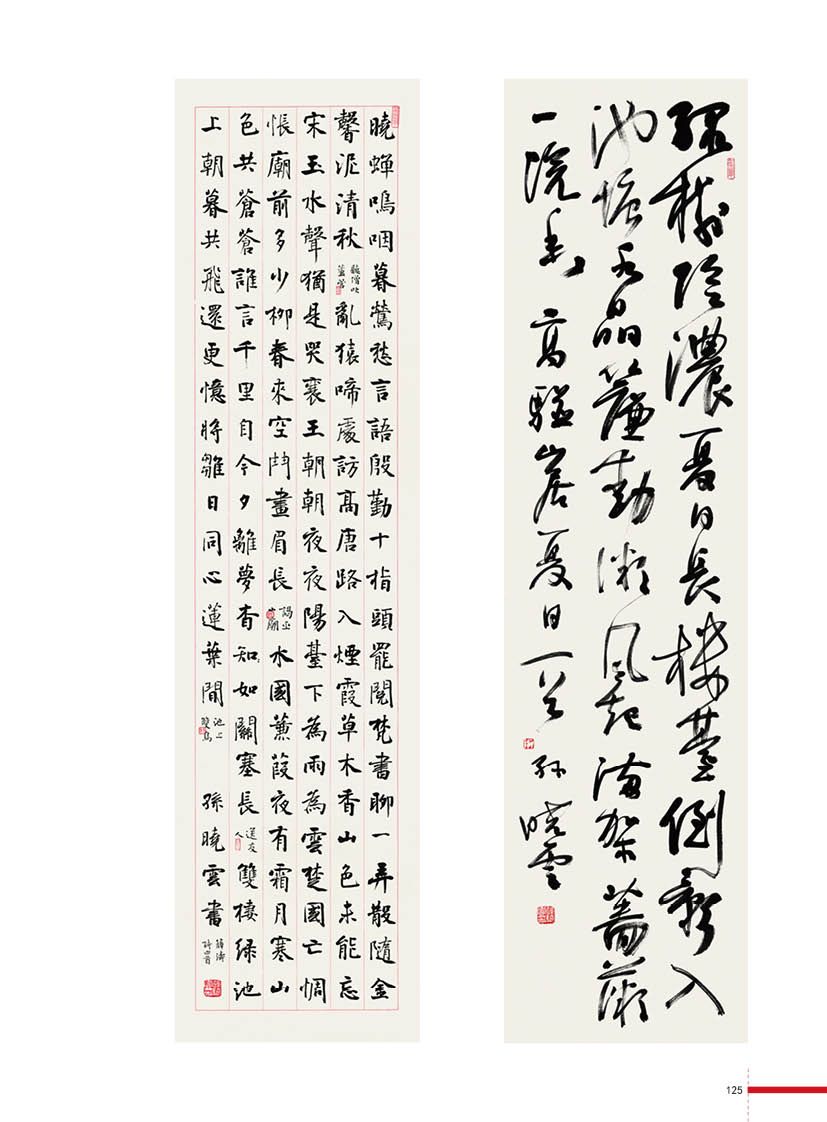 緑樹陰濃夏日長樓臺倒影入
池塘水晶簾動微風起滿架薔薇
一院香 高駢山居夏日一首 孫曉雲
曉蟬嗚咽暮鶯愁言語殷勤十指頭罷閱梵書聊一弄散隨金
磬泥清秋 聽僧吹蘆管 亂猿啼處訪高唐路入煙霞草木香山色未能忘
宋玉水聲猶是哭襄王朝朝夜夜陽臺下為雨為雲楚國亡惆
悵廟前多少柳春來空鬥畫眉長 謁巫山廟 水國蒹葭夜有霜月寒山
色共蒼蒼誰言千里自今夕離夢杳知如關塞長 送友人 雙棲綠池
上朝暮共飛還更憶將雛日同心蓮葉間 池上雙鳥 孫曉雲書 薛濤詩四首
125